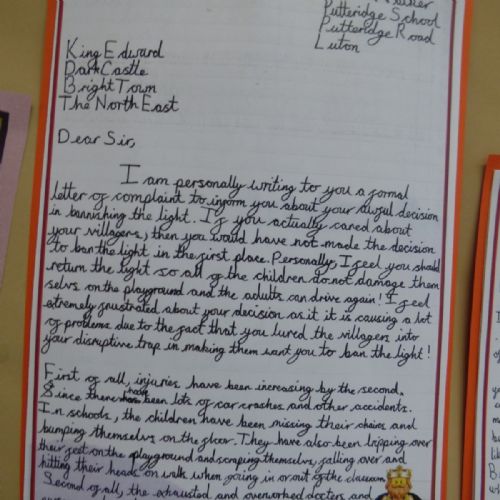 Putteridge School
Putteridge Road
Luton
King Edward
Dark Castle
Bright Town
The North East
Dear Sir,
I am personally writing to you a formal
letter of complaint to inform you about your awful decision
in bannishing the light. If you actually cared about
your villagers, then you would have not made the decision
to ban the light in the first place. Personally, I feel you should
return the light so all of the children do not damage them
selvs on the playground and the adults can drive again! I feel
extremely frustrated about your decision as it it is causing a lot
of problems due to the fact that you lured the villagers into
your disruptive trap in making them want you to ban the light!
First of all, injuries have been increasing by the second.
Since there have been lots of car crashes and other accidents.
In schools, the children have been missing their chairs and
bumping themselves on the floor. They have also been tripping over
their feet on the playground and scraping themselves, falling over and
hitting their heads on walk when going in or out of the classroom
Second of all, the exhausted and overworked doctors and